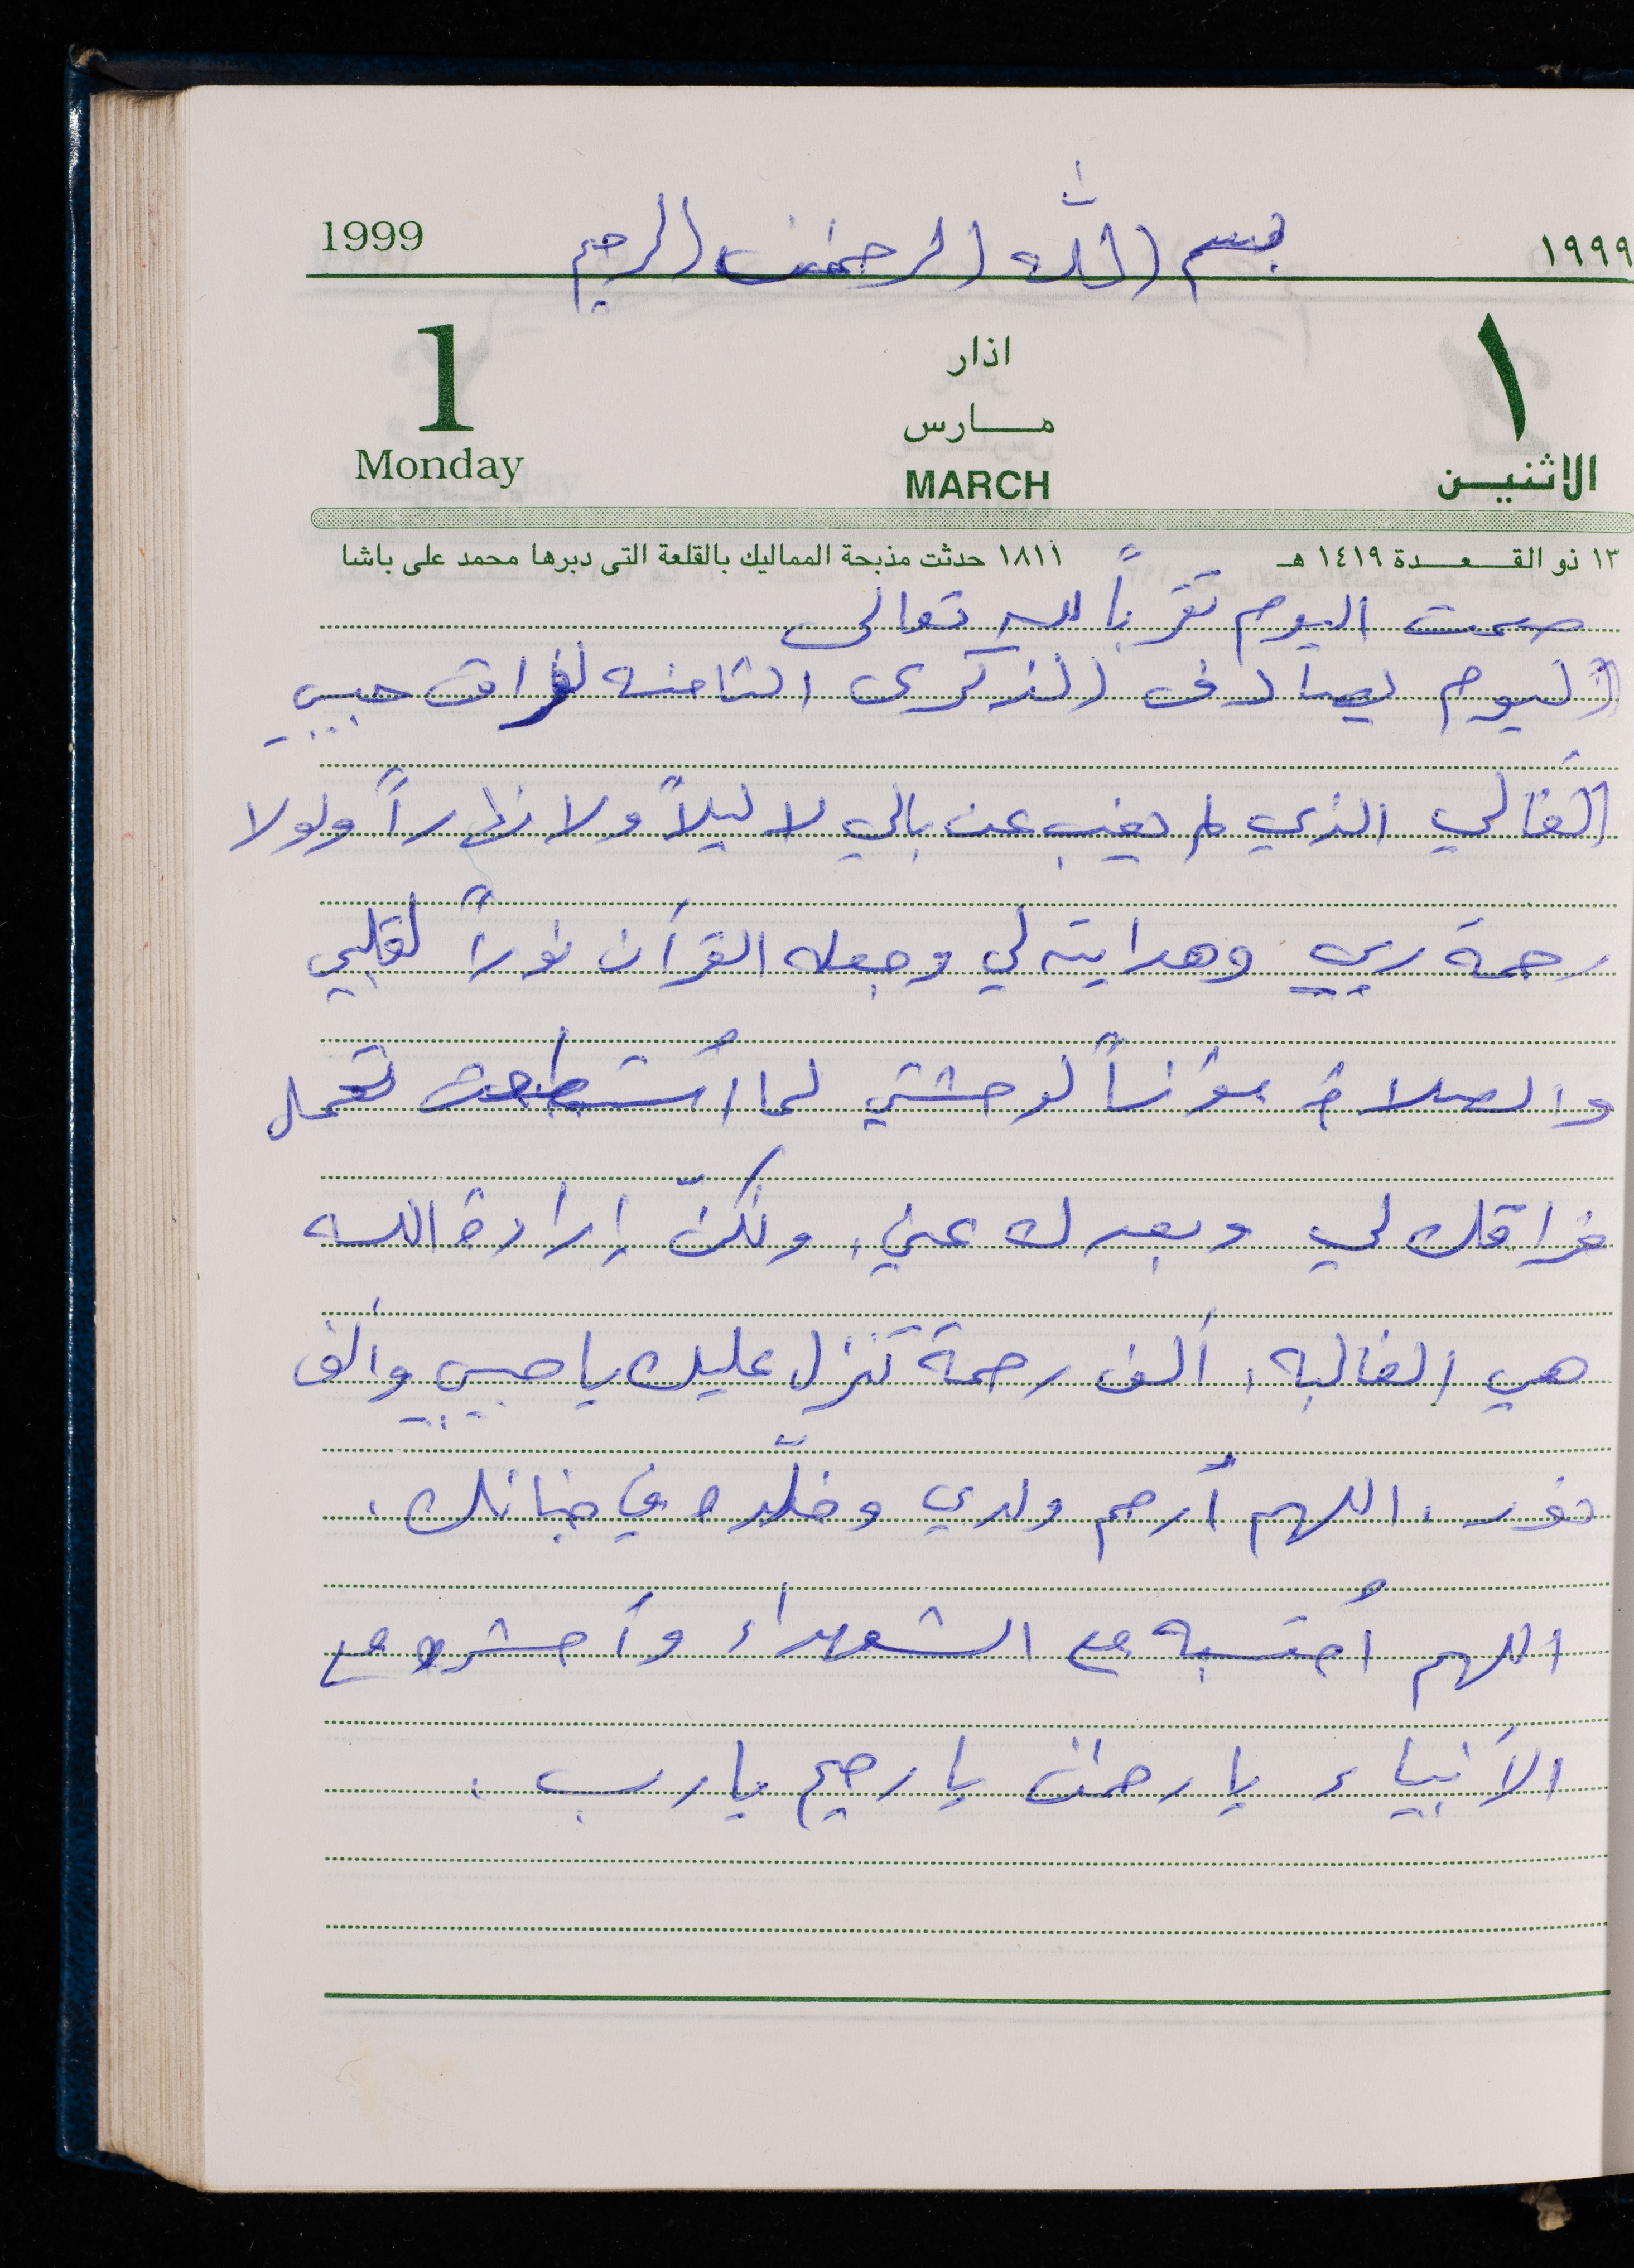 بسم الله الرحمن الرحيم
1999 ١٩٩٩
1 اذار ١
مارس
Monday MARCH الاثنين
١٣ ذو القعدة ١٤١٩ هـ ١٨١١ حدثت مذبحة المماليك بالقلعة التى دبرها محمد على باشا
صمت اليوم تقرباً لله تعالى
اليوم يصادف الذكرى الثامنه لفراق حبيبي
الغالي الذي لم يغب عن بالي لا ليلاً ولا نهاراً ولولا
رحمة ربي وهدايته لي وجعله القرآن نوراً لقلبي
والصلاة مؤنساً لوحشتي لما أستطعت تحمل
فراقك لي وبعدك عني. ولكنّ إرادة الله
هي الغالبه. ألف رحمة تنزل عليك يا حبيبي وألف
نور. اللهم أرحم ولدي وخلّده في جنانك.
اللهم أحتسبه مع الشهداء وأحشره مع
الأنبياء يا رحمن يا رحيم يا رب.